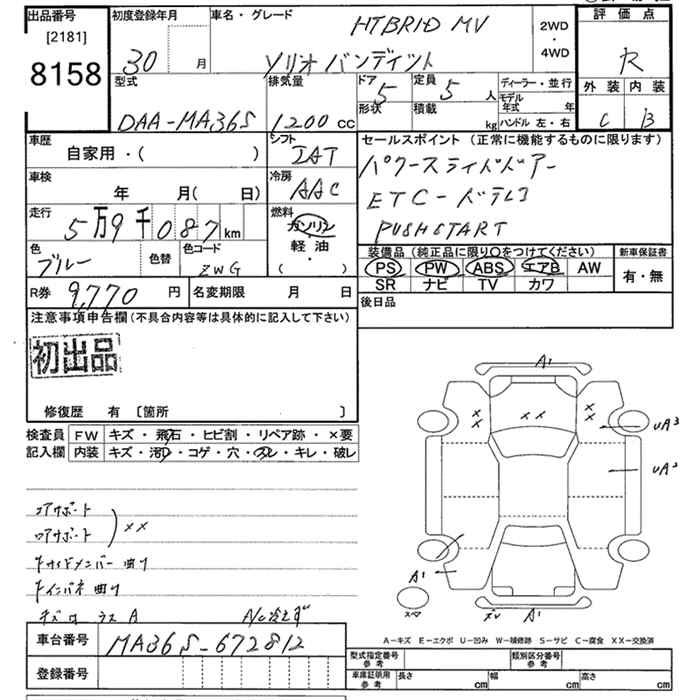 出品番号
[2181]
8158
初度登録年月
30 月
車名・グレード
HYBRID MV
ソリオバンディット
2WD
・
4WD
評価点
R
外装 内装
C B
型式
DAA-MA36S
排気量
1200 cc
ドア 5
形状
定員 5 人
積載 kg
ディーラー・並行
モデル年式 年
ハンドル 左・右
車歴
自家用・( )
シフト
IAT
冷房
AAC
燃料
ガソリン
軽油
( ・ )
車検
年 月( 日)
走行
5万9千087km
色
ブルー
色替
色コード
ZWG
セールスポイント (正常に機能するものに限ります)
パワースライドドアー
ETC-
PUSHSTART
装備品 (純正品に限り○をつけてください)
PS PW ABS エアB AW
SR ナビ TV カワ
新車保証書
有・無
R券 9,770 円
名変期限 月 日
後日品
注意事項申告欄(不具合内容等は具体的に記入して下さい)
初出品
修復歴 有 〔箇所 〕
検査員記入欄
FW キズ・飛石・ヒビ割・リペア跡・×要
内装 キズ・汚れ・コゲ・穴・スレ・キレ・破レ
A1
×
×
××
×
×
UA3
UA3
A1
A1
コアサポート
ロアサポート
××
曲り
曲り
A
A/C冷えず
車台番号 MA36S-672812
登録番号
A-キズ E-エクボ U-凹み W-補修跡 S-サビ C-腐食 XX-交換済
型式指定番号 参考
類別区分番号 参考
車庫証明用 参考
長さ cm
幅 cm
高さ cm